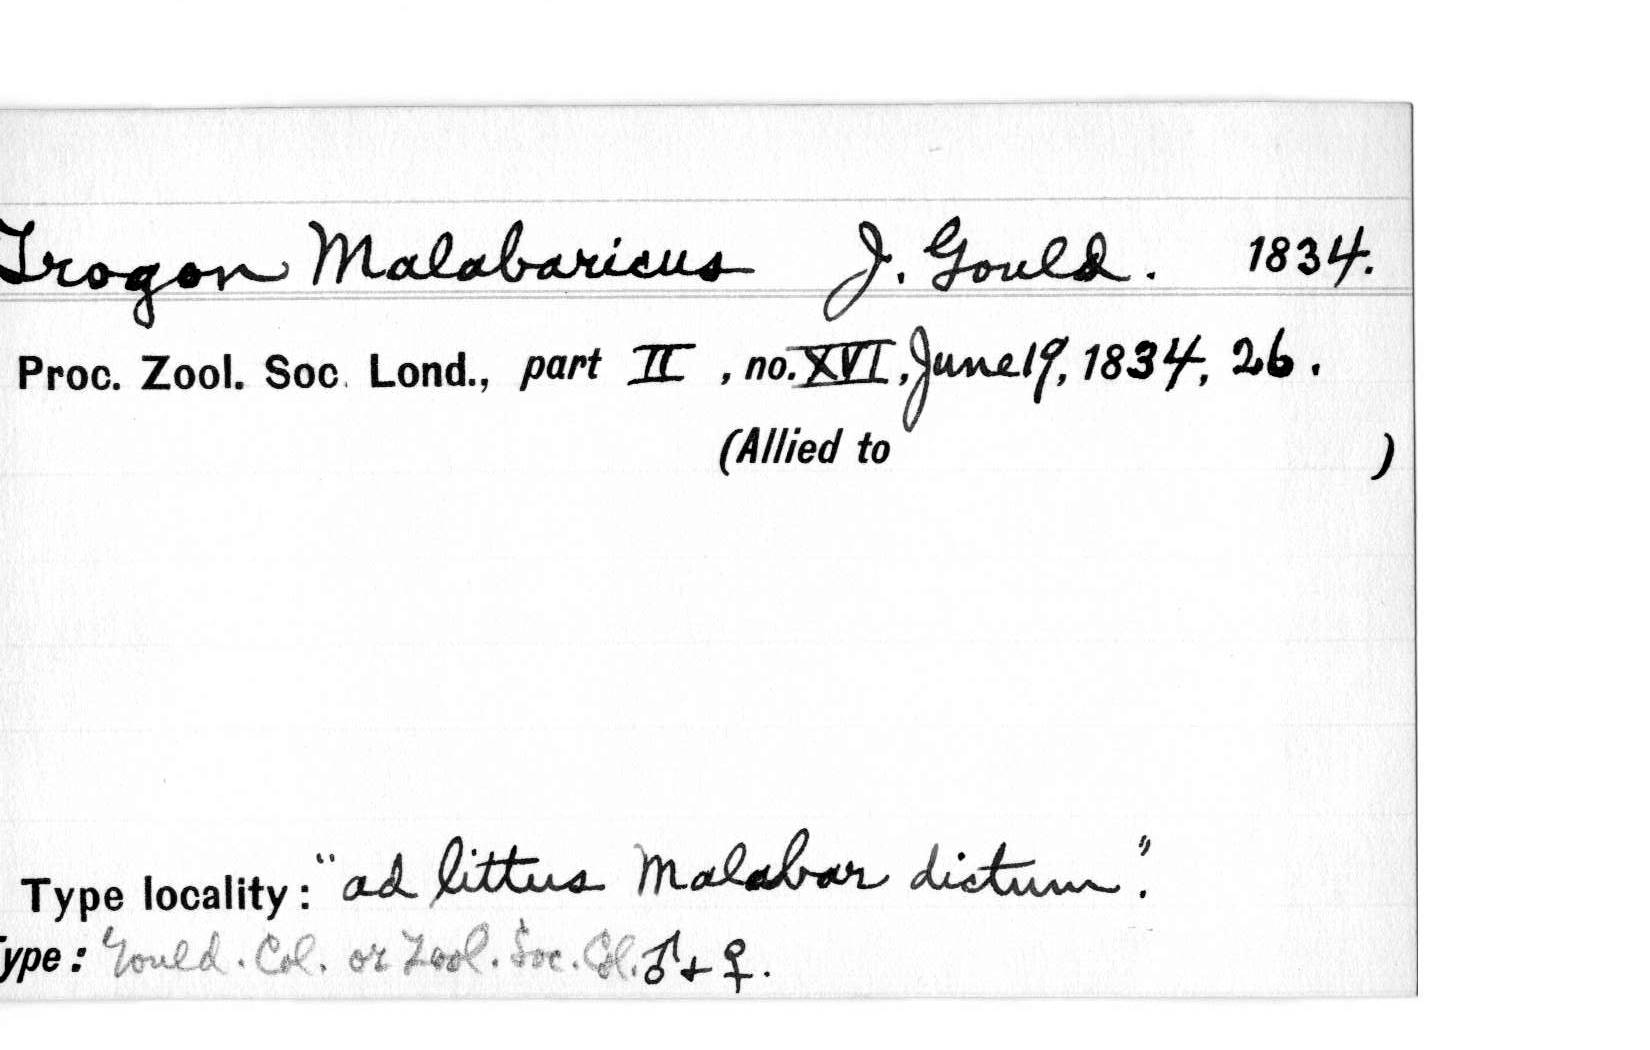 Trogon Malabaricus J. Gould. 1834.
Proc. Zool. Soc. Lond., part II, no. XVI, June 19, 1834, 26.
(Allied to )
Type locality: "ad littus Malabar dictum".
Type: Gould. Col. or Zool. Soc. Col. ♂ + ♀.